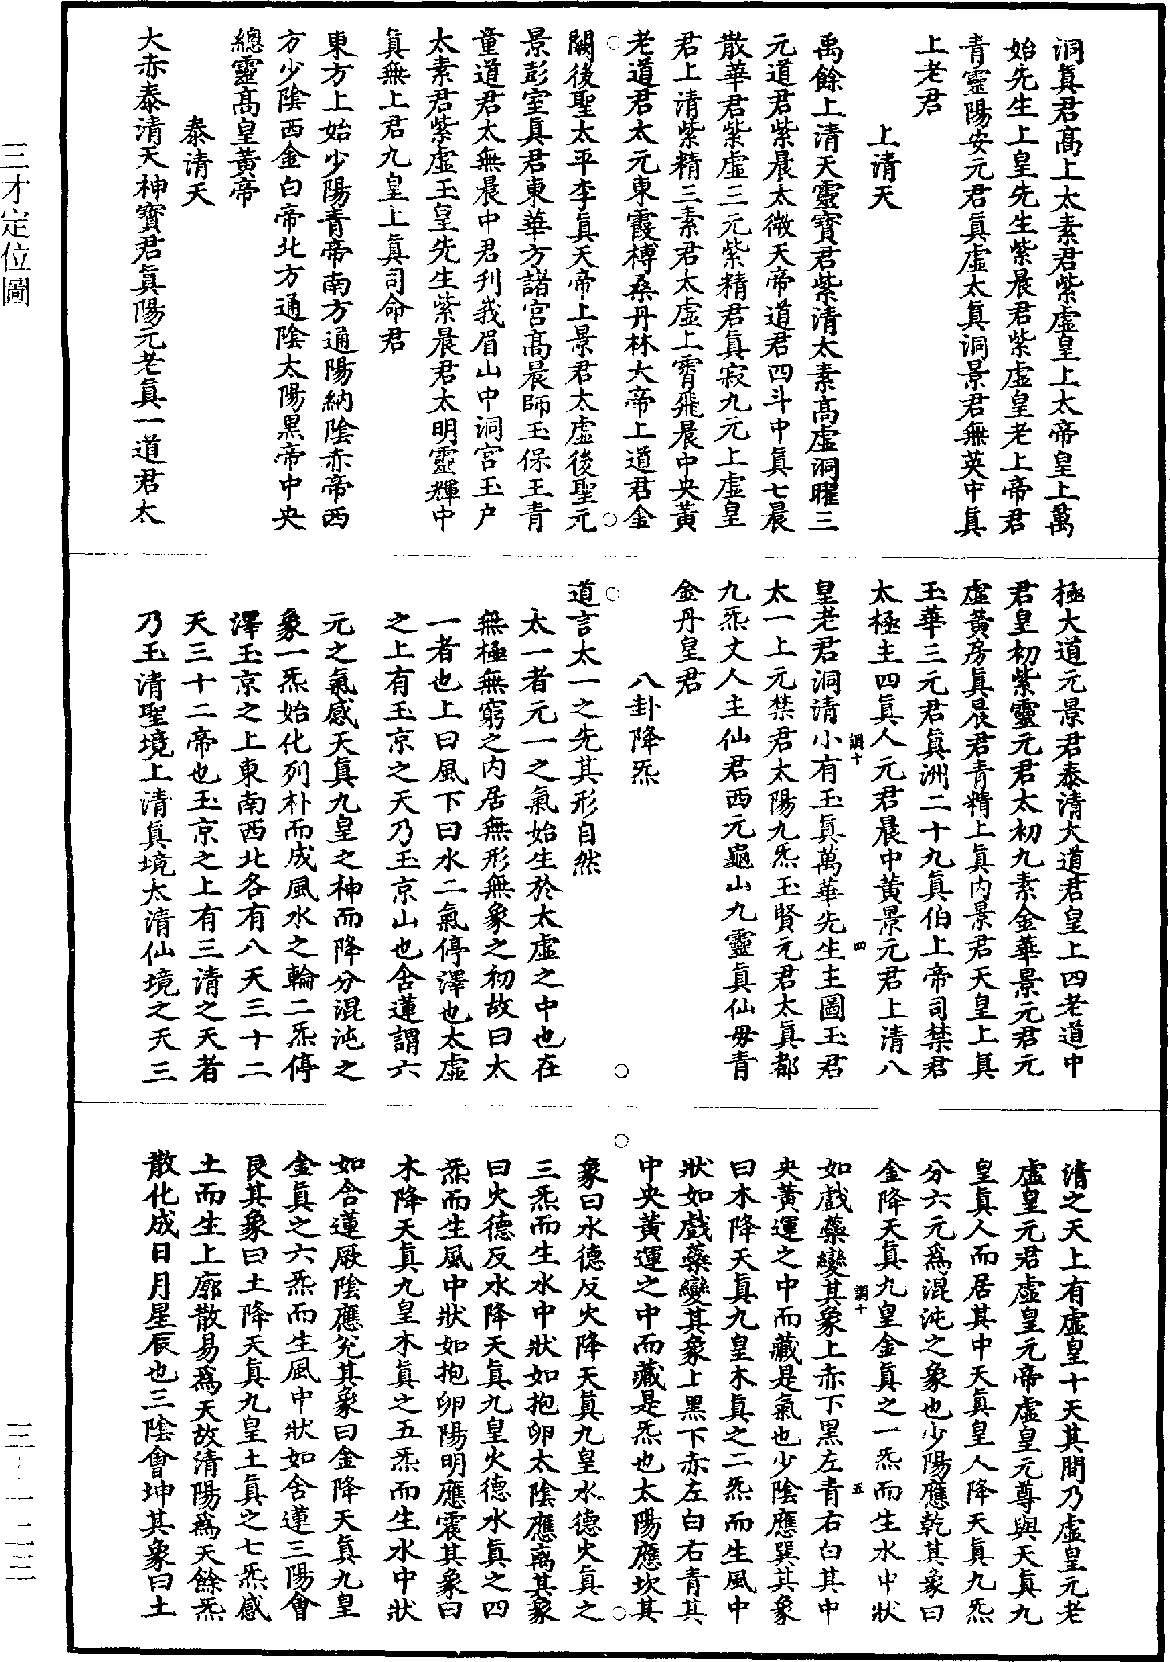 洞眞君高上太素君紫虛皇上太帝皇上萬
始先生上皇先生紫晨君紫虛皇老上帝君
青靈陽安元君眞虛太眞洞景君無英中眞
上老君
上清天
禹餘上清天靈寶君紫清太素高虛洞曜三
元道君紫晨太微天帝道君四斗中眞七晨
散華君紫虛三元紫精君眞寂九元上虛皇
君上清紫精三素君太虛上霄飛晨中央黃
老道君太元東霞榑桑丹林大帝上道君金
闕後聖太平李眞天帝上景君太虛後聖元
景彭室眞君東華方諸宮高晨師玉保王青
童道君太無晨中君刋峩眉山中洞宮玉户
太素君紫虛玉皇先生紫晨君太明靈輝中
眞無上君九皇上眞司命君
東方上始少陽青帝南方通陽納陰赤帝西
方少陰西金白帝北方通陰太陽黑帝中央
總靈高皇黃帝
泰清天
大赤泰清天神寶君眞陽元老眞一道君太
極大道元景君泰清大道君皇上四老道中
君皇初紫靈元君太初九素金華景元君元
虛黃房眞晨君青精上眞内景君天皇上眞
玉華三元君眞洲二十九眞伯上帝司禁君
太極主四眞人元君晨中黃景元君上清八
皇老君洞清小有玉眞萬華先生主圖玉君
太一上元禁君太陽九炁玉賢元君太眞都
九炁丈人主仙君西元龜山九靈眞仙母青
金丹皇君
八卦降炁
道言太一之先其形自然
太一者元一之氣始生於太虛之中也在
無極無窮之内居無形無象之初故曰太
一者也上曰風下曰水二氣停澤也太虛
之上有玉京之天乃玉京山也含蓮謂六
元之氣感天眞九皇之神而降分混沌之
象一炁始化列朴而成風水之輪二炁停
澤玉京之上東南西北各有八天三十二
天三十二帝也玉京之上有三清之天者
乃玉清聖境上清眞境太清仙境之天三
清之天上有虛皇十天其間乃虛皇元老
虛皇元君虛皇元帝虛皇元尊與天眞九
皇眞人而居其中天眞皇人降天眞九炁
分六元爲混沌之象也少陽應乾其象曰
金降天眞九皇金眞之一炁而生水中狀
如戲藥變其象上赤下黑左青右白其中
央黃運之中而藏是氣也少陰應巽其象
曰木降天眞九皇木眞之二炁而生風中
狀如戲藥變其象上黑下赤左白右青其
中央黃運之中而藏是炁也太陽應坎其
象曰水德反火降天眞九皇水德火眞之
三炁而生水中狀如抱卵太陰應离其象
曰火德反水降天眞九皇火德水眞之四
炁而生風中狀如抱卵陽明應震其象曰
木降天眞九皇木眞之五炁而生水中狀
如含蓮厥陰應兊其象曰金降天眞九皇
金眞之六炁而生風中狀如含蓮三陽會
艮其象曰土降天眞九皇土眞之七炁感
土而生上廓散易爲天故清陽爲天餘炁
散化成日月星辰也三陰會坤其象曰土
三才定位圖
三‧一二三